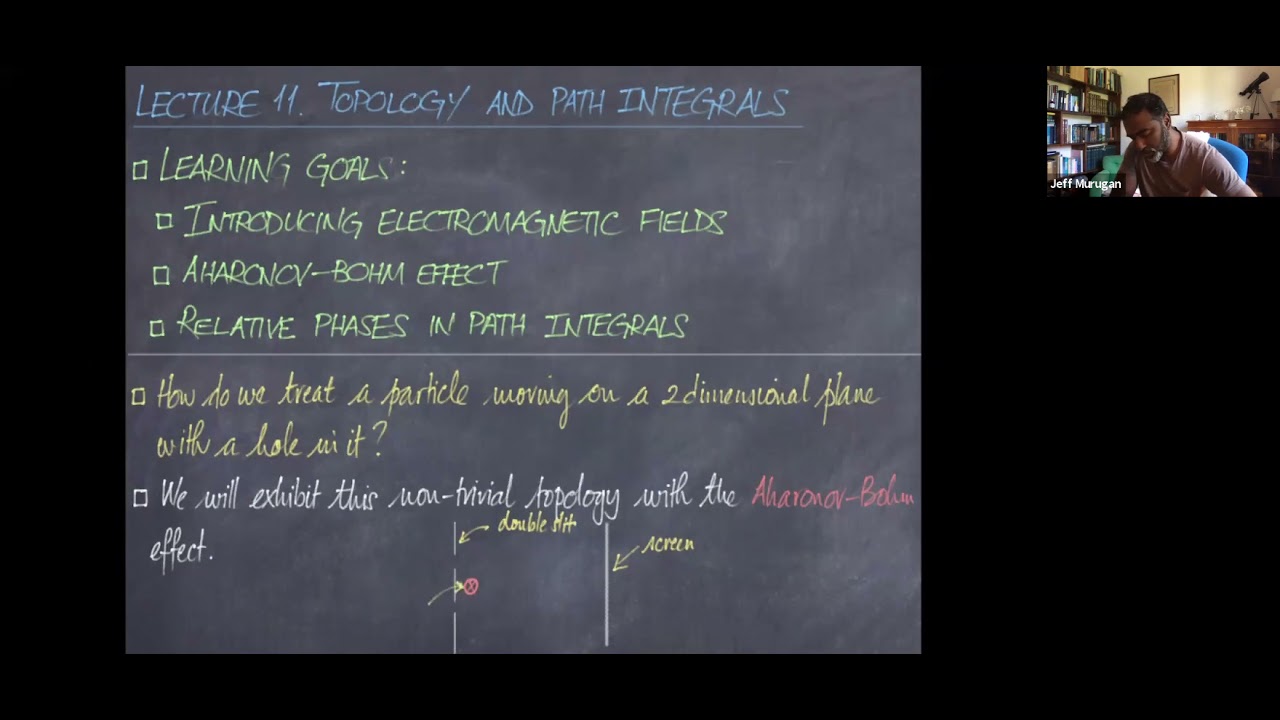 LECTURE 11. TOPOLOGY AND PATH INTEGRALS
LEARNING GOALS:
INTRODUCING ELECTROMAGNETIC FIELDS
AHARONOV-BOHM EFFECT
RELATIVE PHASES IN PATH INTEGRALS
How do we treat a particle moving on a 2 dimensional plane
with a hole in it?
We will exhibit this non-trivial topology with the Aharonov-Bohm
effect.
double slit
screen
Jeff Murugan